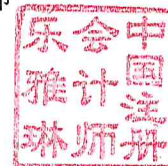 中国注册
会计师
乐雅琳